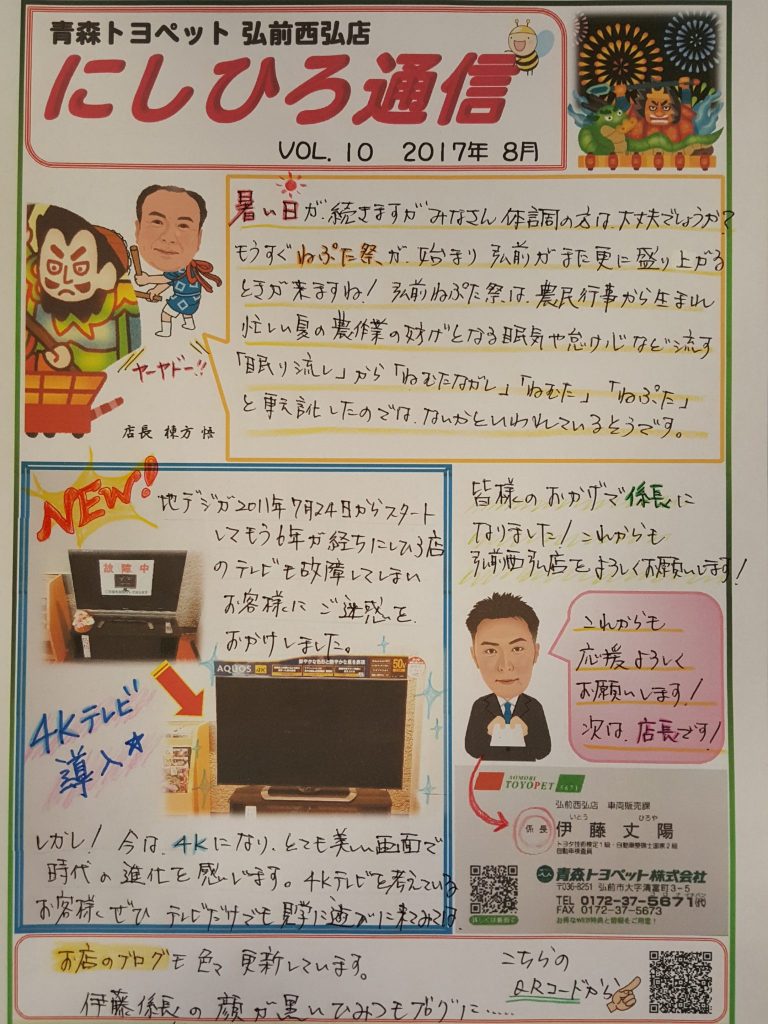 青森トヨペット 弘前西弘店
にしひろ通信
VOL.10 2017年 8月
暑い日が、続きますがみなさん体調の方は、大丈夫でしょうか?
もうすぐねぷた祭が、始まり弘前がまた更に盛り上がる
ときが来ますね! 弘前ねぷた祭は、農民行事から生まれ
忙しい夏の農作業の妨げとなる眠気や怠け心など流す
「眠り流し」から「ねむたながし」「ねむた」「ねぷた」
と転訛したのでは、ないかといわれているそうです。
ヤーヤドー!!
店長 棟方 悟
NEW!
地デジが2011年7月24日からスタート
してもう6年が経ちにしひろ店
のテレビも故障してしまい
お客様にご迷惑を
おかけしました。
故障中
AQUOS 4K
50
4Kテレビ
導入☆
しかし! 今は、4Kになり、とても美しい画面で
時代の進化を感じます。4Kテレビを考えている
お客様、ぜひ テレビだけでも見学に
皆様のおかげで係長に
なりました! これからも
弘前西弘店をよろしくお願いします!
これからも
応援よろしく
お願いします!
次は、店長です!
AOMORI
TOYOPET 5671
弘前西弘店 車両販売課
いとう ひろや
係長 伊藤 丈陽
トヨタ技術検定1級・自動車整備士国家2級
自動車検査員
青森トヨペット株式会社
〒036-8251 弘前市大字清富町3-5
TEL 0172-37-5671㈹
FAX 0172-37-5673
お得なWEB特典と情報をご用意!
詳しくは動画で
お店のブログも色々更新しています。
伊藤係長の顔が黒いひみつもブログに.....
こちらの
QRコードから